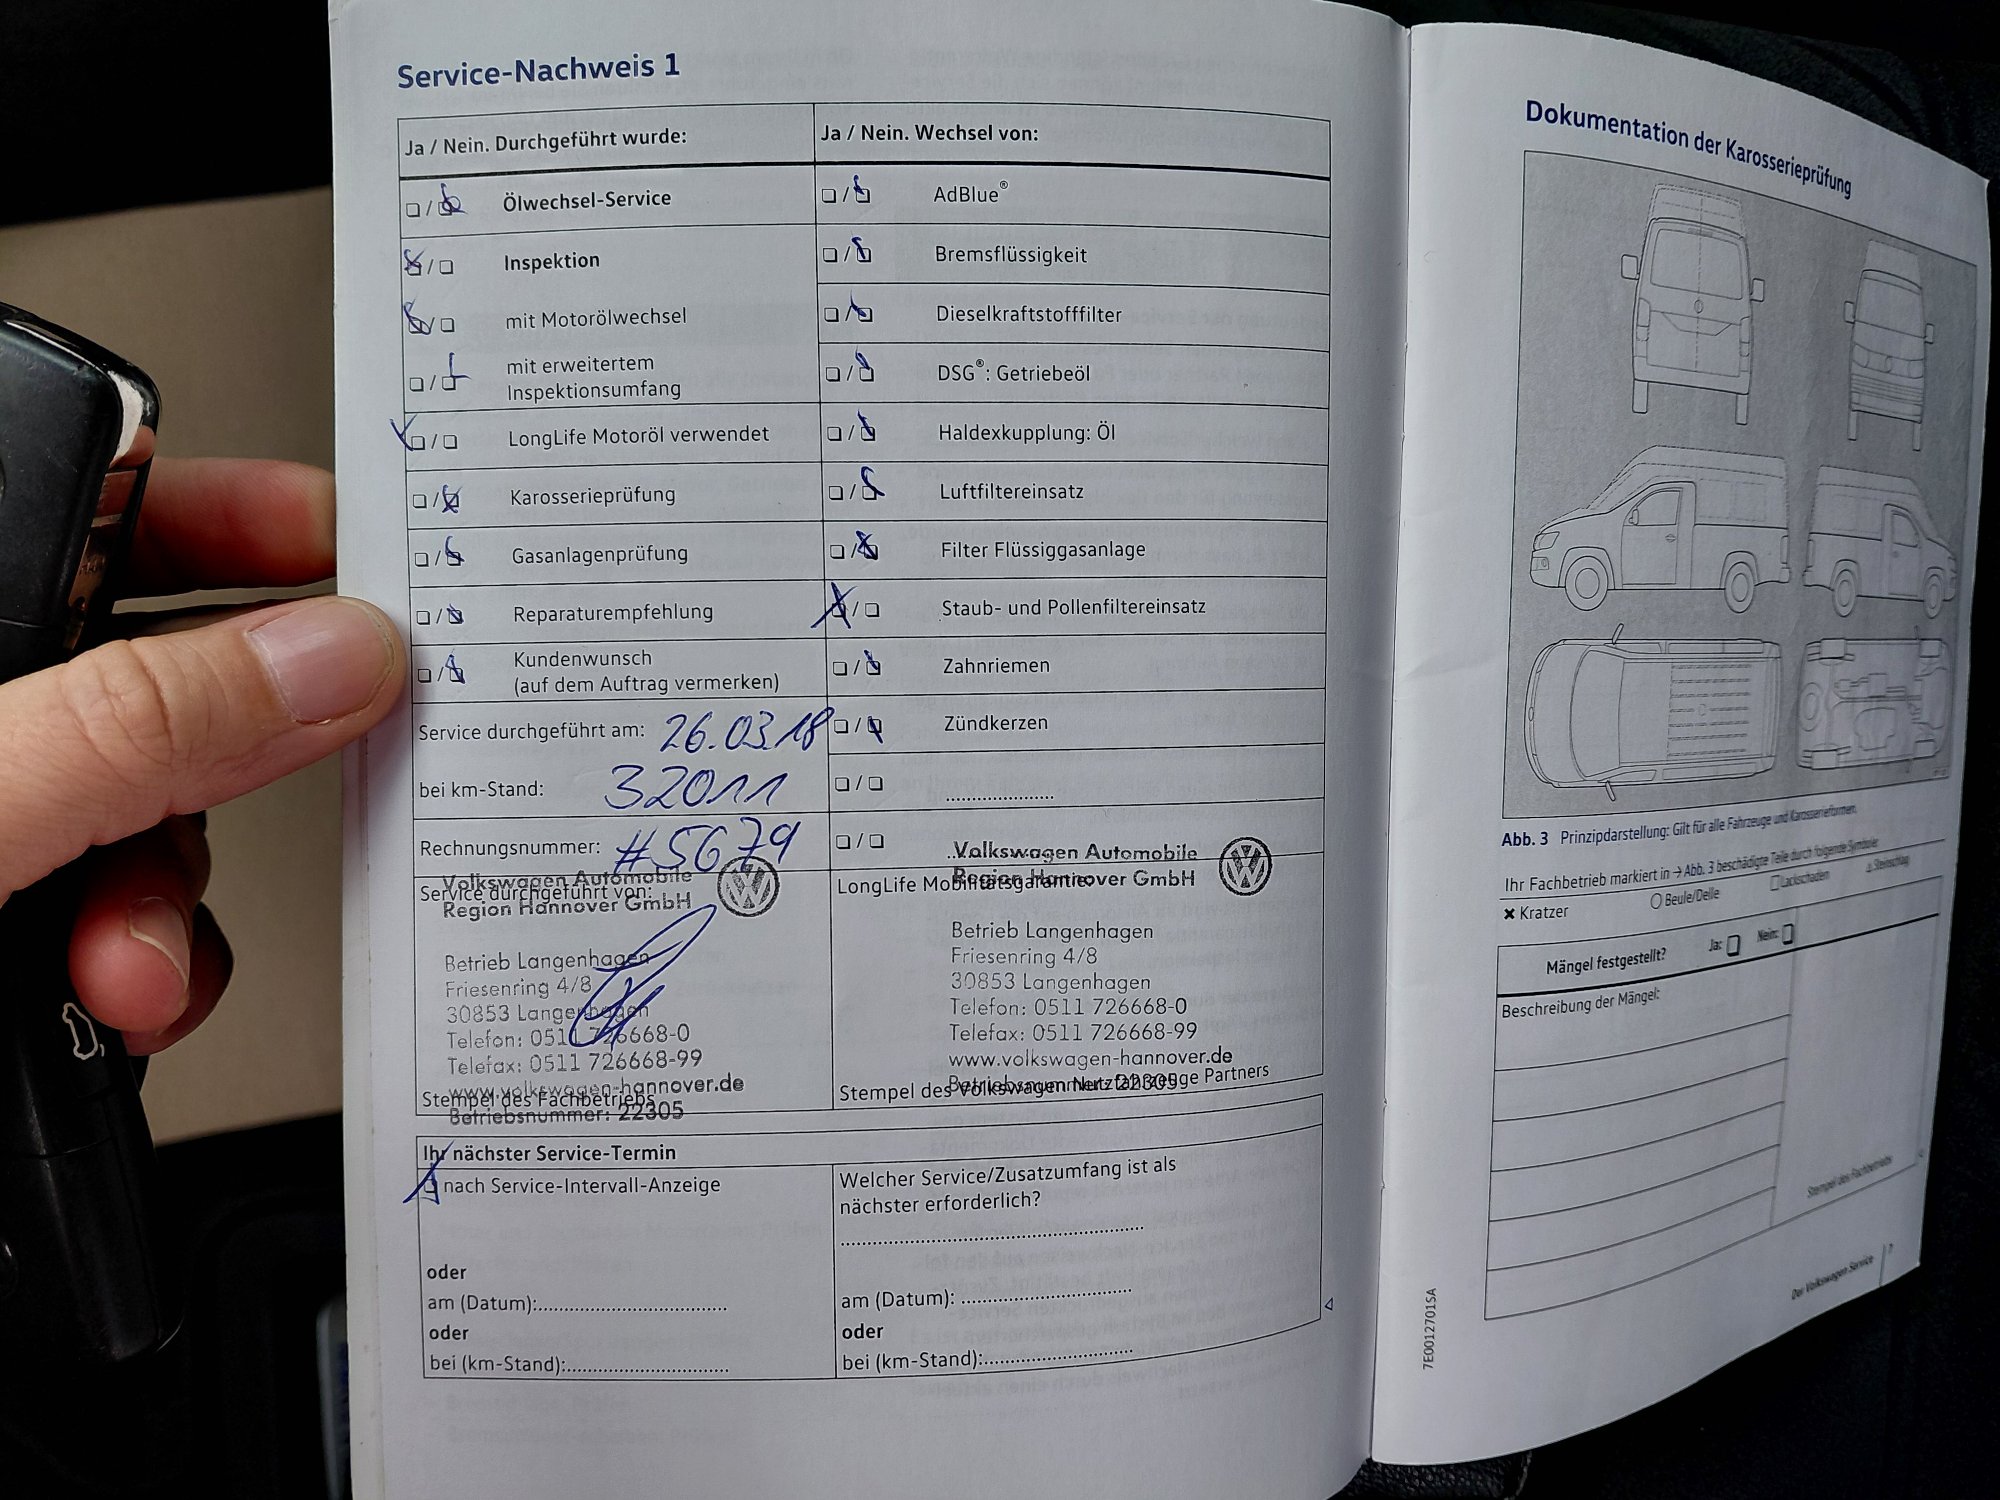 Service-Nachweis 1
Ja / Nein. Durchgeführt wurde:
Ölwechsel-Service
Inspektion
mit Motorölwechsel
mit erweitertem
Inspektionsumfang
LongLife Motoröl verwendet
Karosserieprüfung
Gasanlagenprüfung
Reparaturempfehlung
Kundenwunsch
(auf dem Auftrag vermerken)
Service durchgeführt am: 26.03.18
bei km-Stand: 32011
Rechnungsnummer: #5679
Service durchgeführt von:
Volkswagen Automobile
Region Hannover GmbH
Betrieb Langenhagen
Friesenring 4/8
30853 Langenhagen
Telefon: 0511 726668-0
Telefax: 0511 726668-99
www.volkswagen-hannover.de
Stempel des Fachbetriebs
Betriebsnummer: 22305
Ja / Nein. Wechsel von:
AdBlue®
Bremsflüssigkeit
Dieselkraftstofffilter
DSG®: Getriebeöl
Haldexkupplung: Öl
Luftfiltereinsatz
Filter Flüssiggasanlage
Staub- und Pollenfiltereinsatz
Zahnriemen
Zündkerzen
LongLife Mobilitätsgarantie:
Volkswagen Automobile
Region Hannover GmbH
Betrieb Langenhagen
Friesenring 4/8
30853 Langenhagen
Telefon: 0511 726668-0
Telefax: 0511 726668-99
www.volkswagen-hannover.de
Betriebsnummer: 22305
Stempel des Volkswagen Nutzfahrzeuge Partners
Ihr nächster Service-Termin
nach Service-Intervall-Anzeige
oder
am (Datum):
oder
bei (km-Stand):
Welcher Service/Zusatzumfang ist als
nächster erforderlich?
am (Datum):
oder
bei (km-Stand):
Dokumentation der Karosserieprüfung
Abb. 3 Prinzipdarstellung: Gilt für alle Fahrzeuge und Karosserieformen.
Ihr Fachbetrieb markiert in → Abb. 3 beschädigte Teile durch folgende Symbole
Kratzer Beule/Delle Lackschaden Steinschlag
Mängel festgestellt? Ja: Nein:
Beschreibung der Mängel:
Stempel des Fachbetriebs
7E0012701SA
Der Volkswagen Service 7